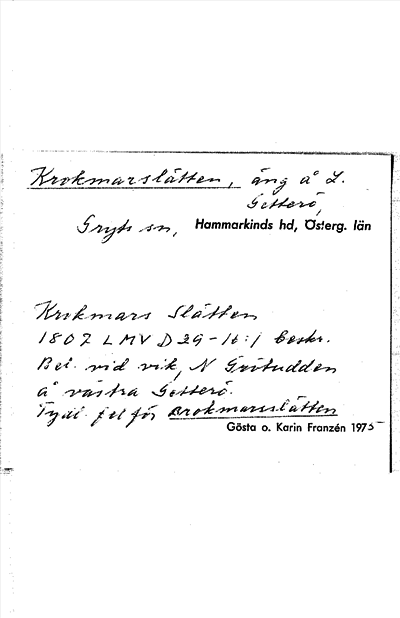 Krokmarslåtten, äng å L.
Getterö,
Gryts sn, Hammarkinds hd, Österg. län
Krokmars Slåtten
1807 LMV D 29-16:1 beskr.
Bel. vid vik, N Grötudden
å västra Getterö.
Tydl. fel för Brokmarsslåtten
Gösta o. Karin Franzén 1975